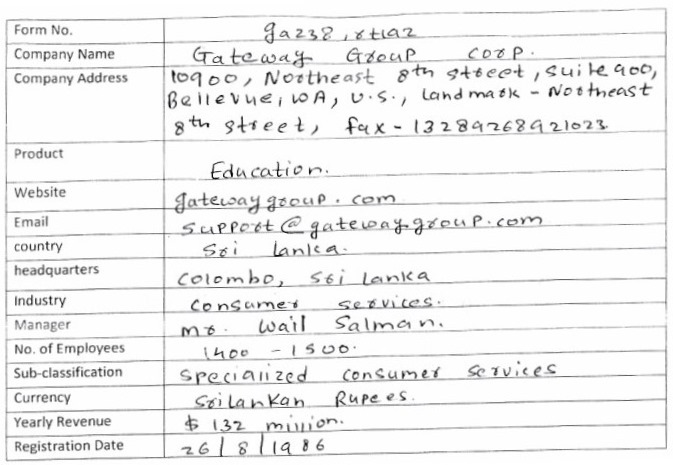 Form No. ga238, rt1a2
Company Name Gateway Group corp.
Company Address 10900, Northeast 8th street, suite 900,
Bellevue, WA, U.S., Landmark - Northeast
8th street, fax - 13289268921023
Product Education.
Website gatewaygroup.com
Email support@gatewaygroup.com
country Sri lanka.
headquarters colombo, Sri Lanka
Industry consumer services.
Manager mr. Wail Salman.
No. of Employees 1400 - 1500.
Sub-classification specialized consumer services
Currency Srilankan Rupees.
Yearly Revenue $ 132 million.
Registration Date 26/8/1986